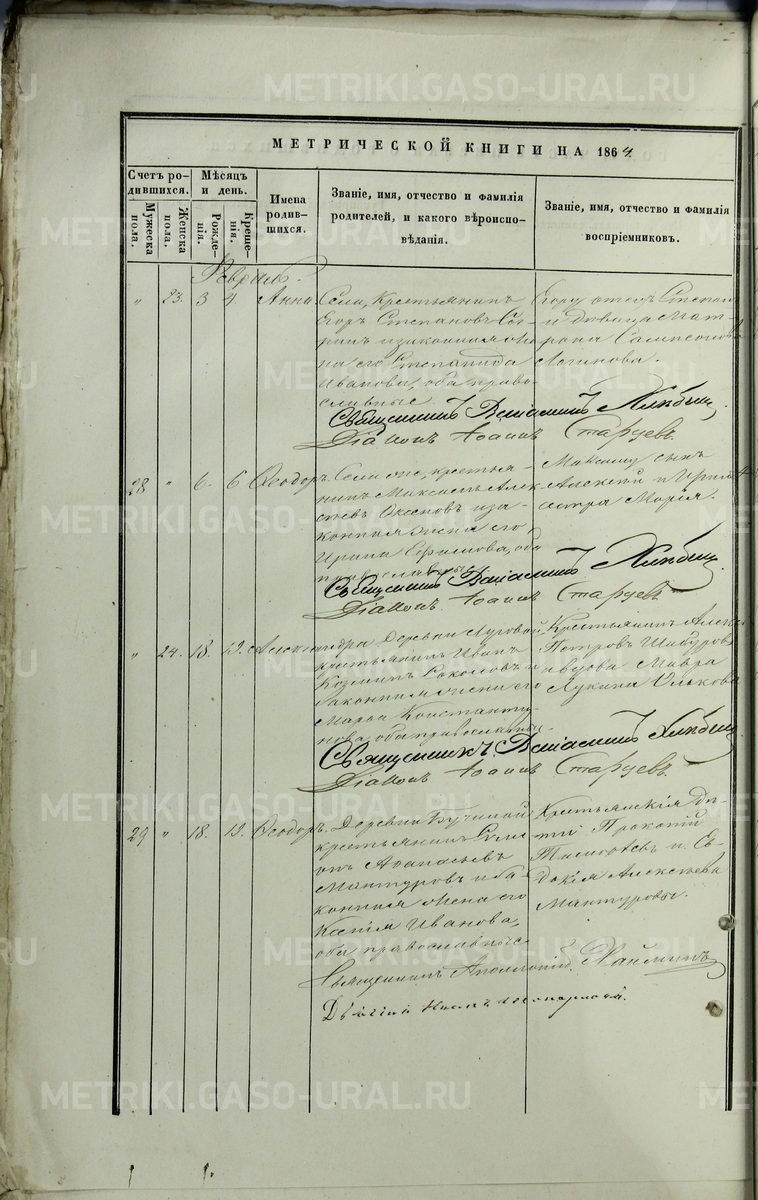 METRIKI.GASO-URAL.RU
МЕТРИЧЕСКОЙ КНИГИ НА 1864.
Счетъ ро-
дившихся.
Мужеска
пола.
Женска
пола.
Мѣсяцъ
и день.
Рожде-
нія.
Креще-
нія.
Имена
родив-
шихся.
Званіе, имя, отчество и фамилія
родителей, и какого вѣроиспо-
вѣданія.
Званіе, имя, отчество и фамилія
воспріемниковъ.
Февраль.
" 23. 3 4. Анна
Села, Крестьянинъ
Егоръ Степановъ
и законная
его Степанида
Иванова, оба право-
славные.
Егору отецъ Степан
и дѣвица Мат-
рона Сампсонова
Логинова.
Священникъ Веніаминъ Хлѣбин
Діаконъ Іоаннъ Старцевъ.
28 " 6. 6 Ѳеодоръ.
Села же, крестья-
нинъ Максимъ Алек-
сѣевъ и за-
конная жена его
Ирина Ефимова, оба
православные
Максиму сынъ
Алексѣй и
сестра Марія.
Священникъ Веніаминъ Хлѣбин
Діаконъ Іоаннъ Старцевъ
" 24. 18. 19. Александра
Деревни Луговой
крестьянинъ Иванъ
Козминъ Соколовъ и
законная жена его
Марѳа Константи-
нова, оба православные
Крестьянинъ Алекс
Петровъ Шабуровъ
и вдова Мавра
Лукина
Священникъ Веніаминъ Хлѣбин
Діаконъ Іоаннъ Старцевъ.
29 " 18. 19. Ѳеодоръ.
Деревни
крестьянинъ
Аѳанасьевъ
Мантуровъ и за-
конная жена его
Ксенія Иванова,
оба православные
Крестьянскія дѣ-
ти Прокопій
Тимоѳеевъ и Ев-
докія Алексѣева
Мантуровы.
Священникъ Аполлоній